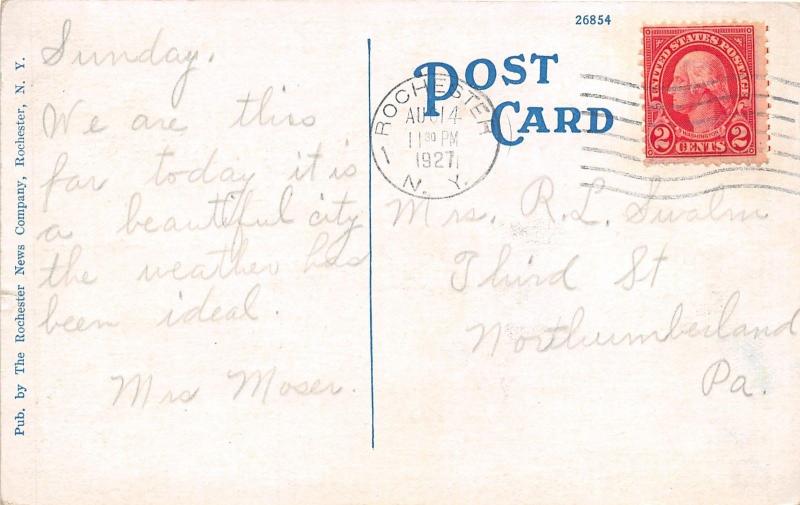 26854
POST
CARD
UNITED STATES POSTAGE
WASHINGTON
2 CENTS 2
ROCHESTER
AUG 14
11 30 PM
1927
N. Y.
Sunday.
We are this
far today it is
a beautiful city
the weather has
been ideal.
Mrs Moser.
Mrs. R. L. Swalm
Third St
Northumberland
Pa.
Pub. by The Rochester News Company, Rochester, N. Y.